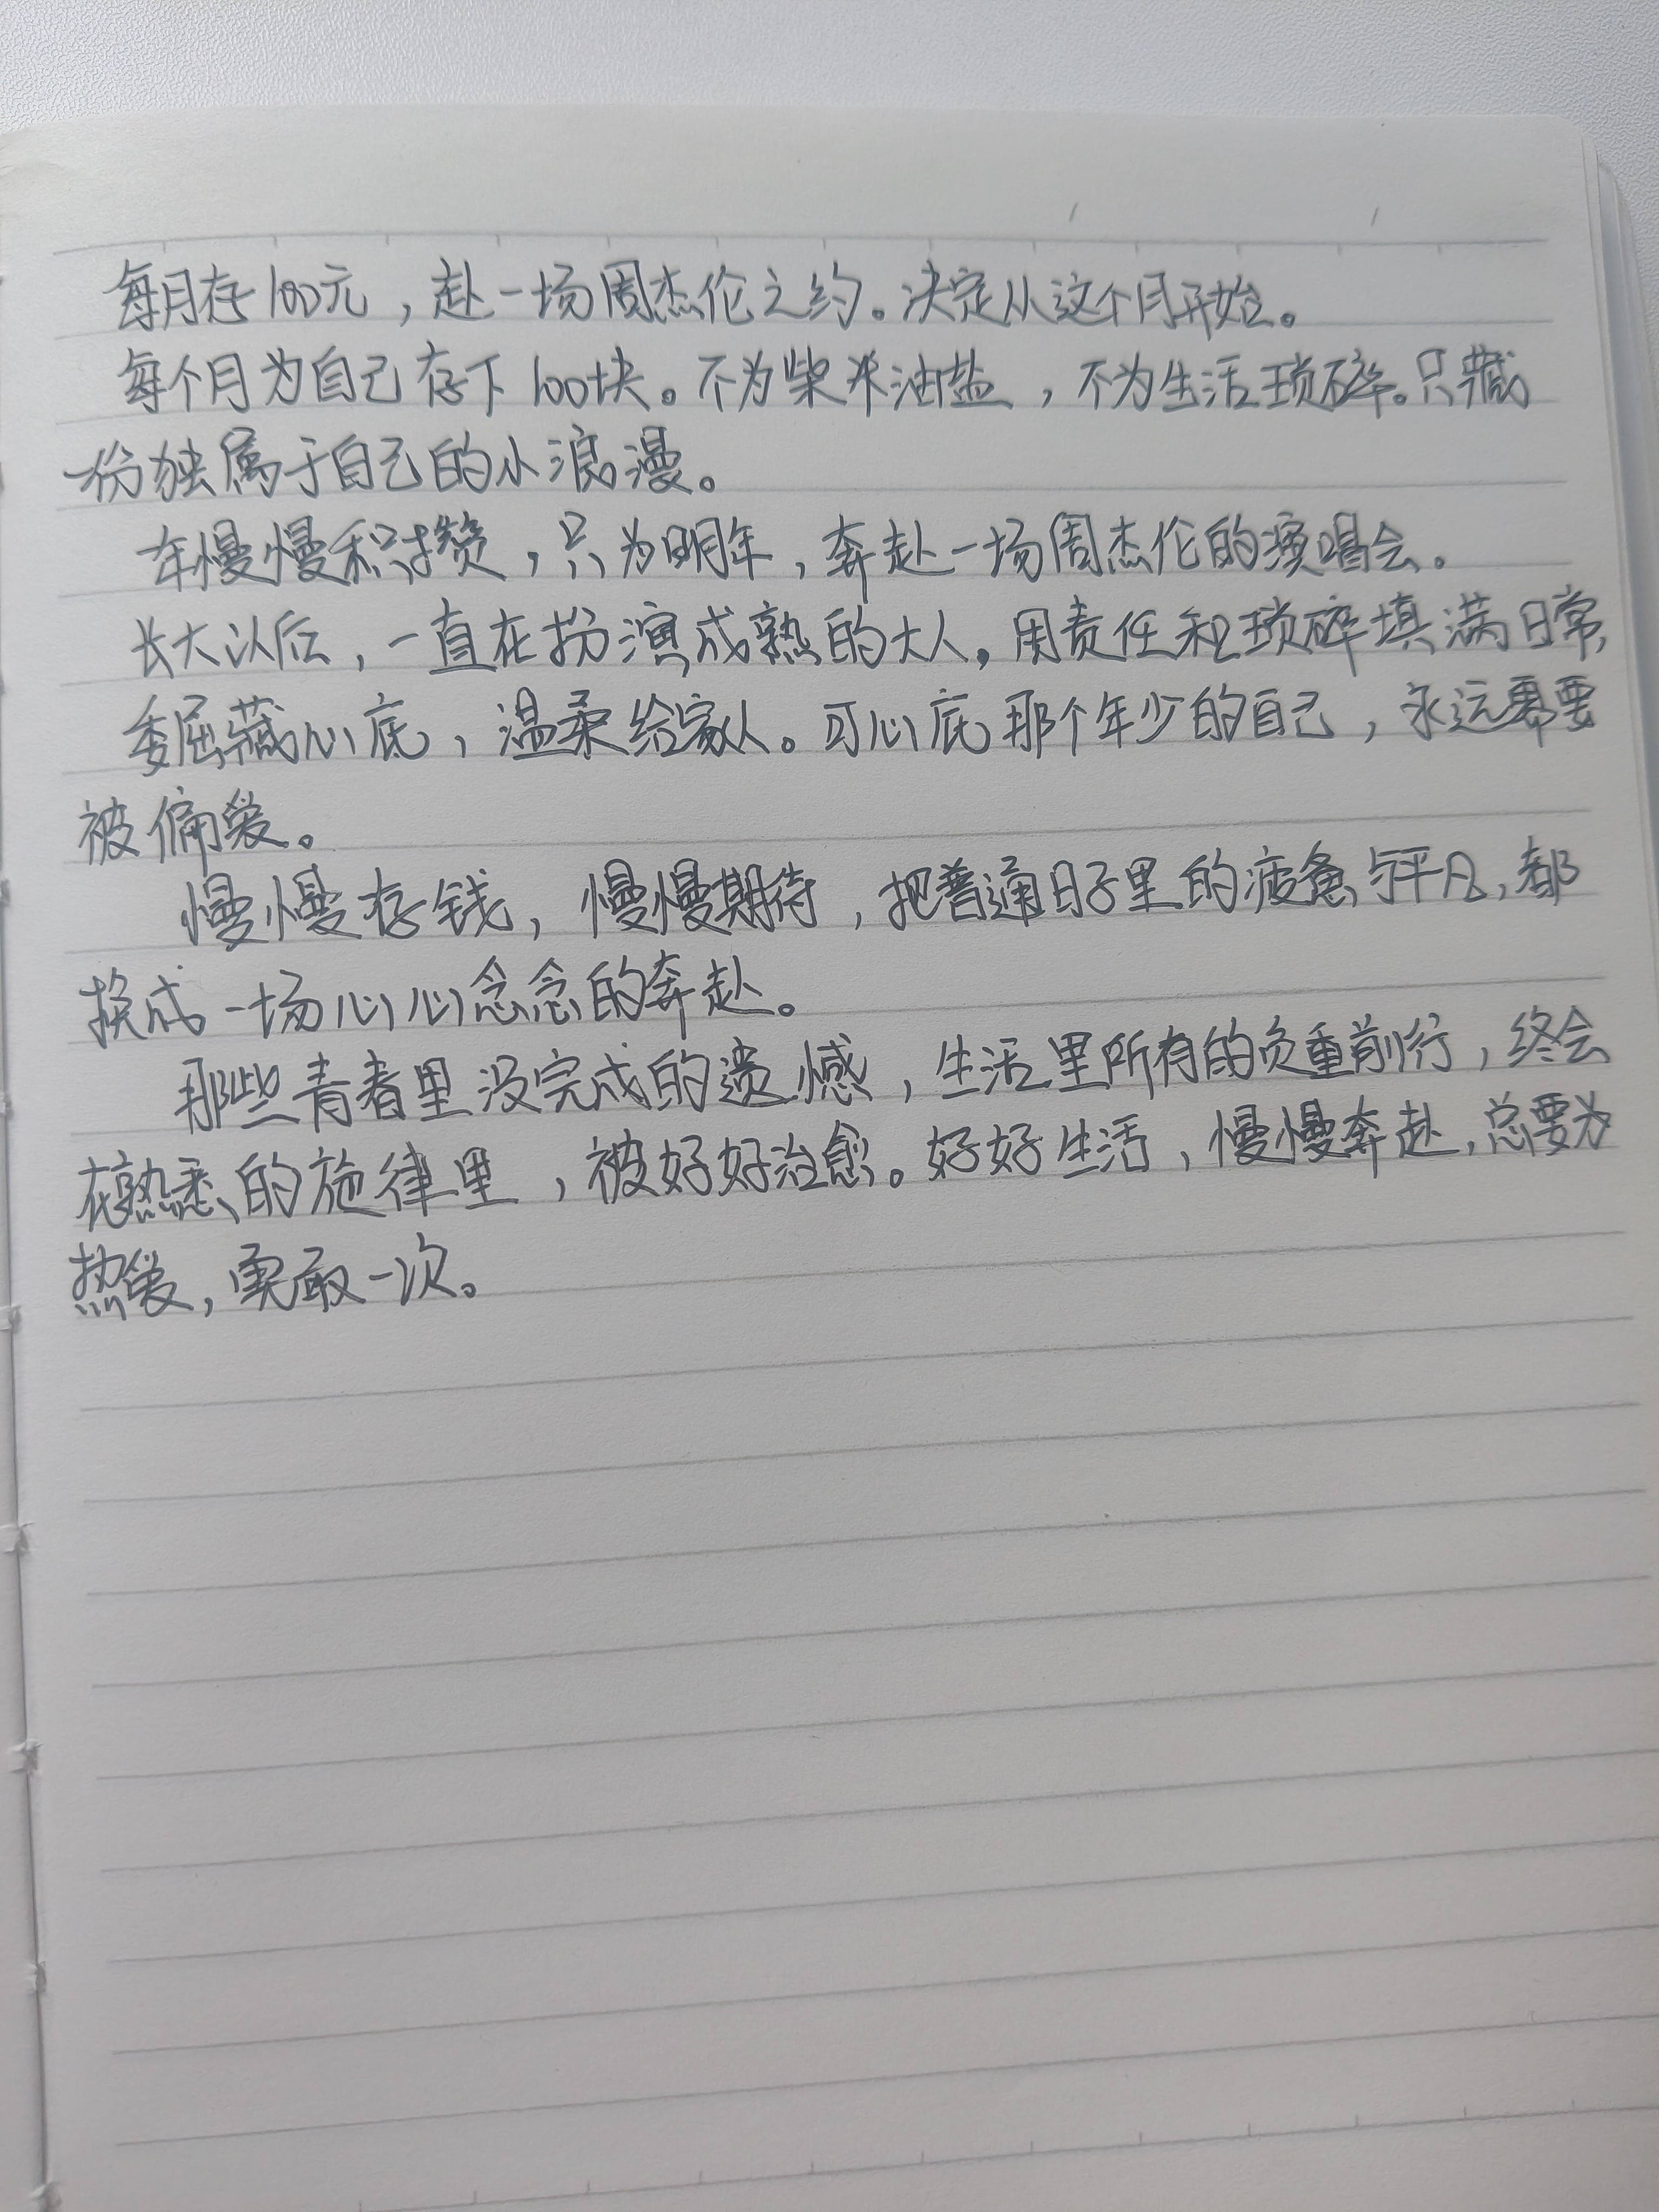 每月存100元，赴一场周杰伦之约。决定从这个月开始。
每个月为自己存下100块。不为柴米油盐，不为生活琐碎。只藏
一份独属于自己的小浪漫。
年慢慢积攒，只为明年，奔赴一场周杰伦的演唱会。
长大以后，一直在扮演成熟的大人。用责任和琐碎填满日常，
委屈藏心底，温柔给家人。可心底那个年少的自己，永远需要
被偏爱。
慢慢存钱，慢慢期待，把普通日子里的疲惫与平凡，都
换成一场心心念念的奔赴。
那些青春里没完成的遗憾，生活里所有的负重前行，终会
在熟悉的旋律里，被好好治愈。好好生活，慢慢奔赴，总要为
热爱，勇敢一次。